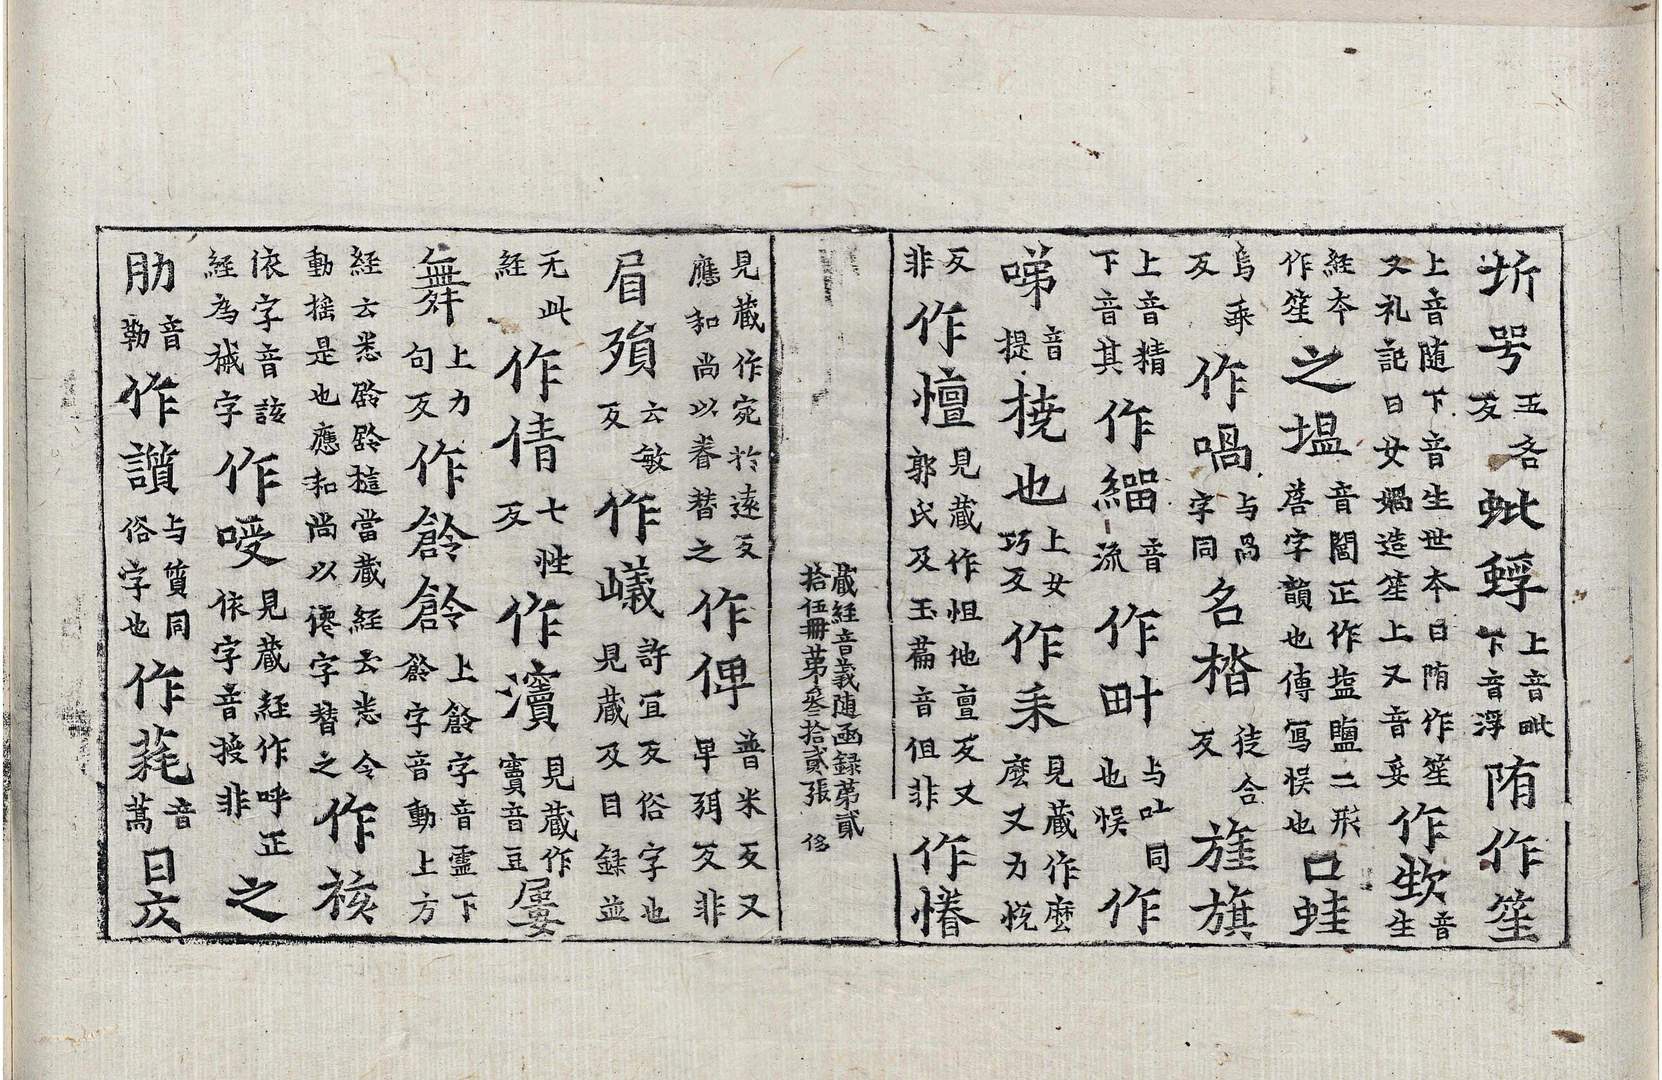 圻咢五各反蚍蜉上音毗下音浮陏作笙
上音随下音生世夲曰陏作笙又礼記曰女媧造笙上又音妥作㰮音生
經夲作笙之塭音閻正作塩鹽二形菩字韻也傳寫悮也口蛙
烏乖反作喎与咼字同名㭼徒合反旌旗
上音精下音其作緇音流作甽与𠮟同也悮作
㖒音提撓也上女巧反作䄫見藏作麽麽又力恱
反非作㣶見藏作怚他亶反又郭氏及玉篇音但非作惓
藏經音義随函録苐貳拾伍冊苐叄拾貳張 侈
見藏作宛扵逺反應和尚以眷替之作俾普米反又卑弭反非
眉殞云敏反作㠖許冝反俗字也見藏及目録並
无此經作倩七性反作瀆見藏作竇音豆屢
舞上力句反作䶢䶢上䶢字音靈下䶢字音動上方
經云悉䶢䶢㯿當藏經云悉令動揺是也應和尚以㒨字替之作核
依字音該經為械字作嗳見藏經作呼正依字音授非之
肋音勒作讃与質同俗字也作䒵音蒿日亥